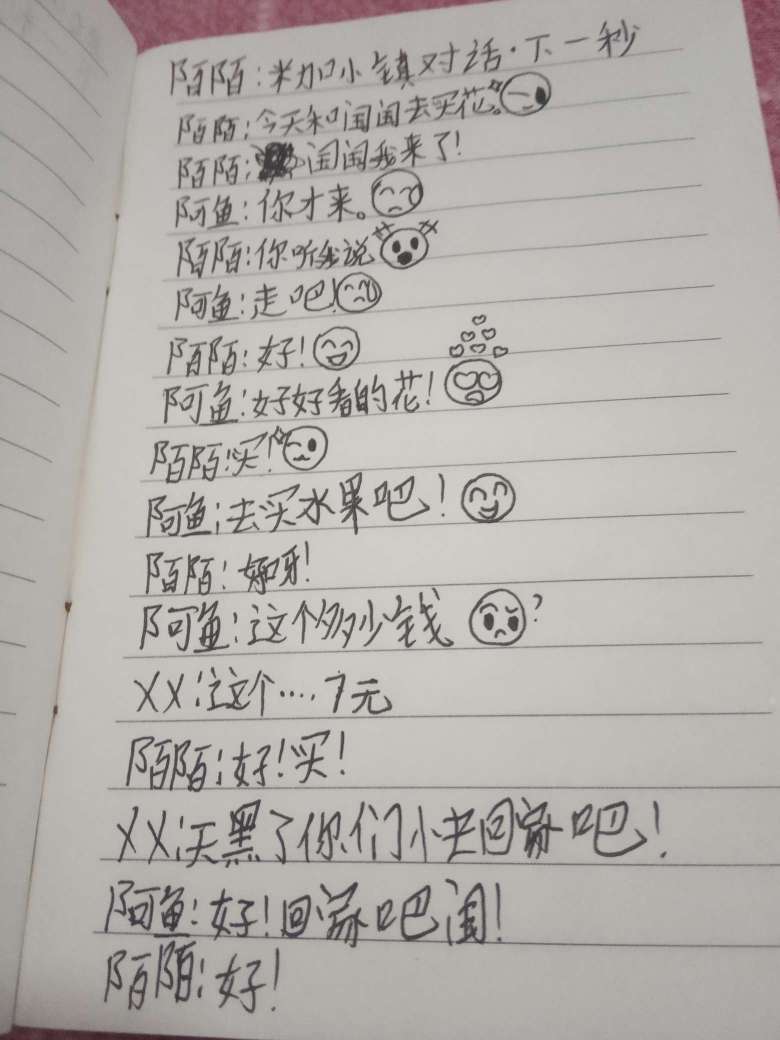 陌陌:米加小镇对话·下一秒
陌陌:今天和闺闺去买花。
陌陌:闺闺我来了!
阿鱼:你才来。
陌陌:你听我说
阿鱼:走吧!
陌陌:好!
阿鱼:好好看的花!
陌陌:买!
阿鱼:去买水果吧!
陌陌:好呀!
阿鱼:这个多少钱?
XX:这个....7元
陌陌:好!买!
XX:天黑了你们小去回家吧!
阿鱼:好!回家吧闺!
陌陌:好!